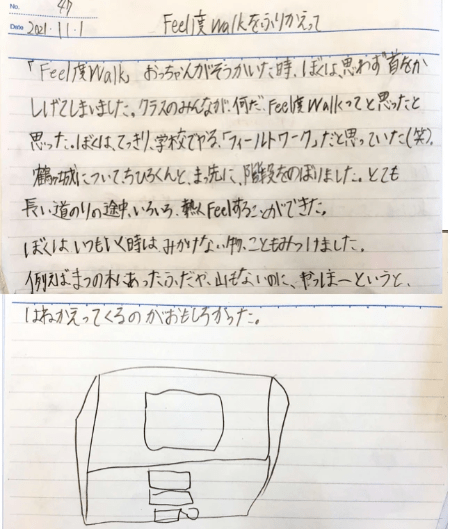 No. 47
Date 2021.11.1
Feel度Walkをふりかえって
「Feel度Walk」おっちゃんがそうかいた時、ぼくは、思わず首をか
しげてしまいました。クラスのみんなが、何だ、Feel度Walkってと思ったと
思った。ぼくは、てっきり、学校でやる、「フィールドワーク」だと思っていた(笑)。
鶴ヶ城について、ちひろくんと、まっ先に、階段をのぼりました。とても
長い道のりの途中、いろいろ、Feelすることができた。
ぼくはいつもいく時は、みかけない物、こともみつけました。
例えばまつの木にあったふだや、山もないのに、やっほーというと、
はねかえってくるのがおもしろかった。